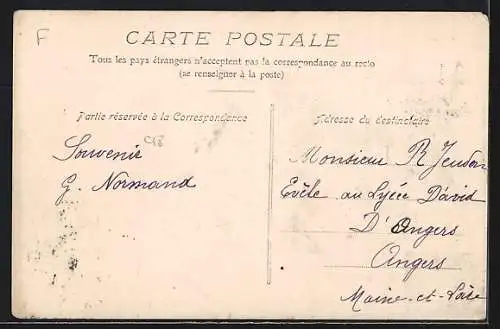 F
CARTE POSTALE
Tous les pays étrangers n'acceptent pas la correspondance au recto
(se renseigner à la poste)
Partie réservée à la Correspondance
Souvenir
G. Normand
Adresse du destinataire
Monsieur R
Evêle au Lycée David
D'Angers
Angers
Maine-et-Loire